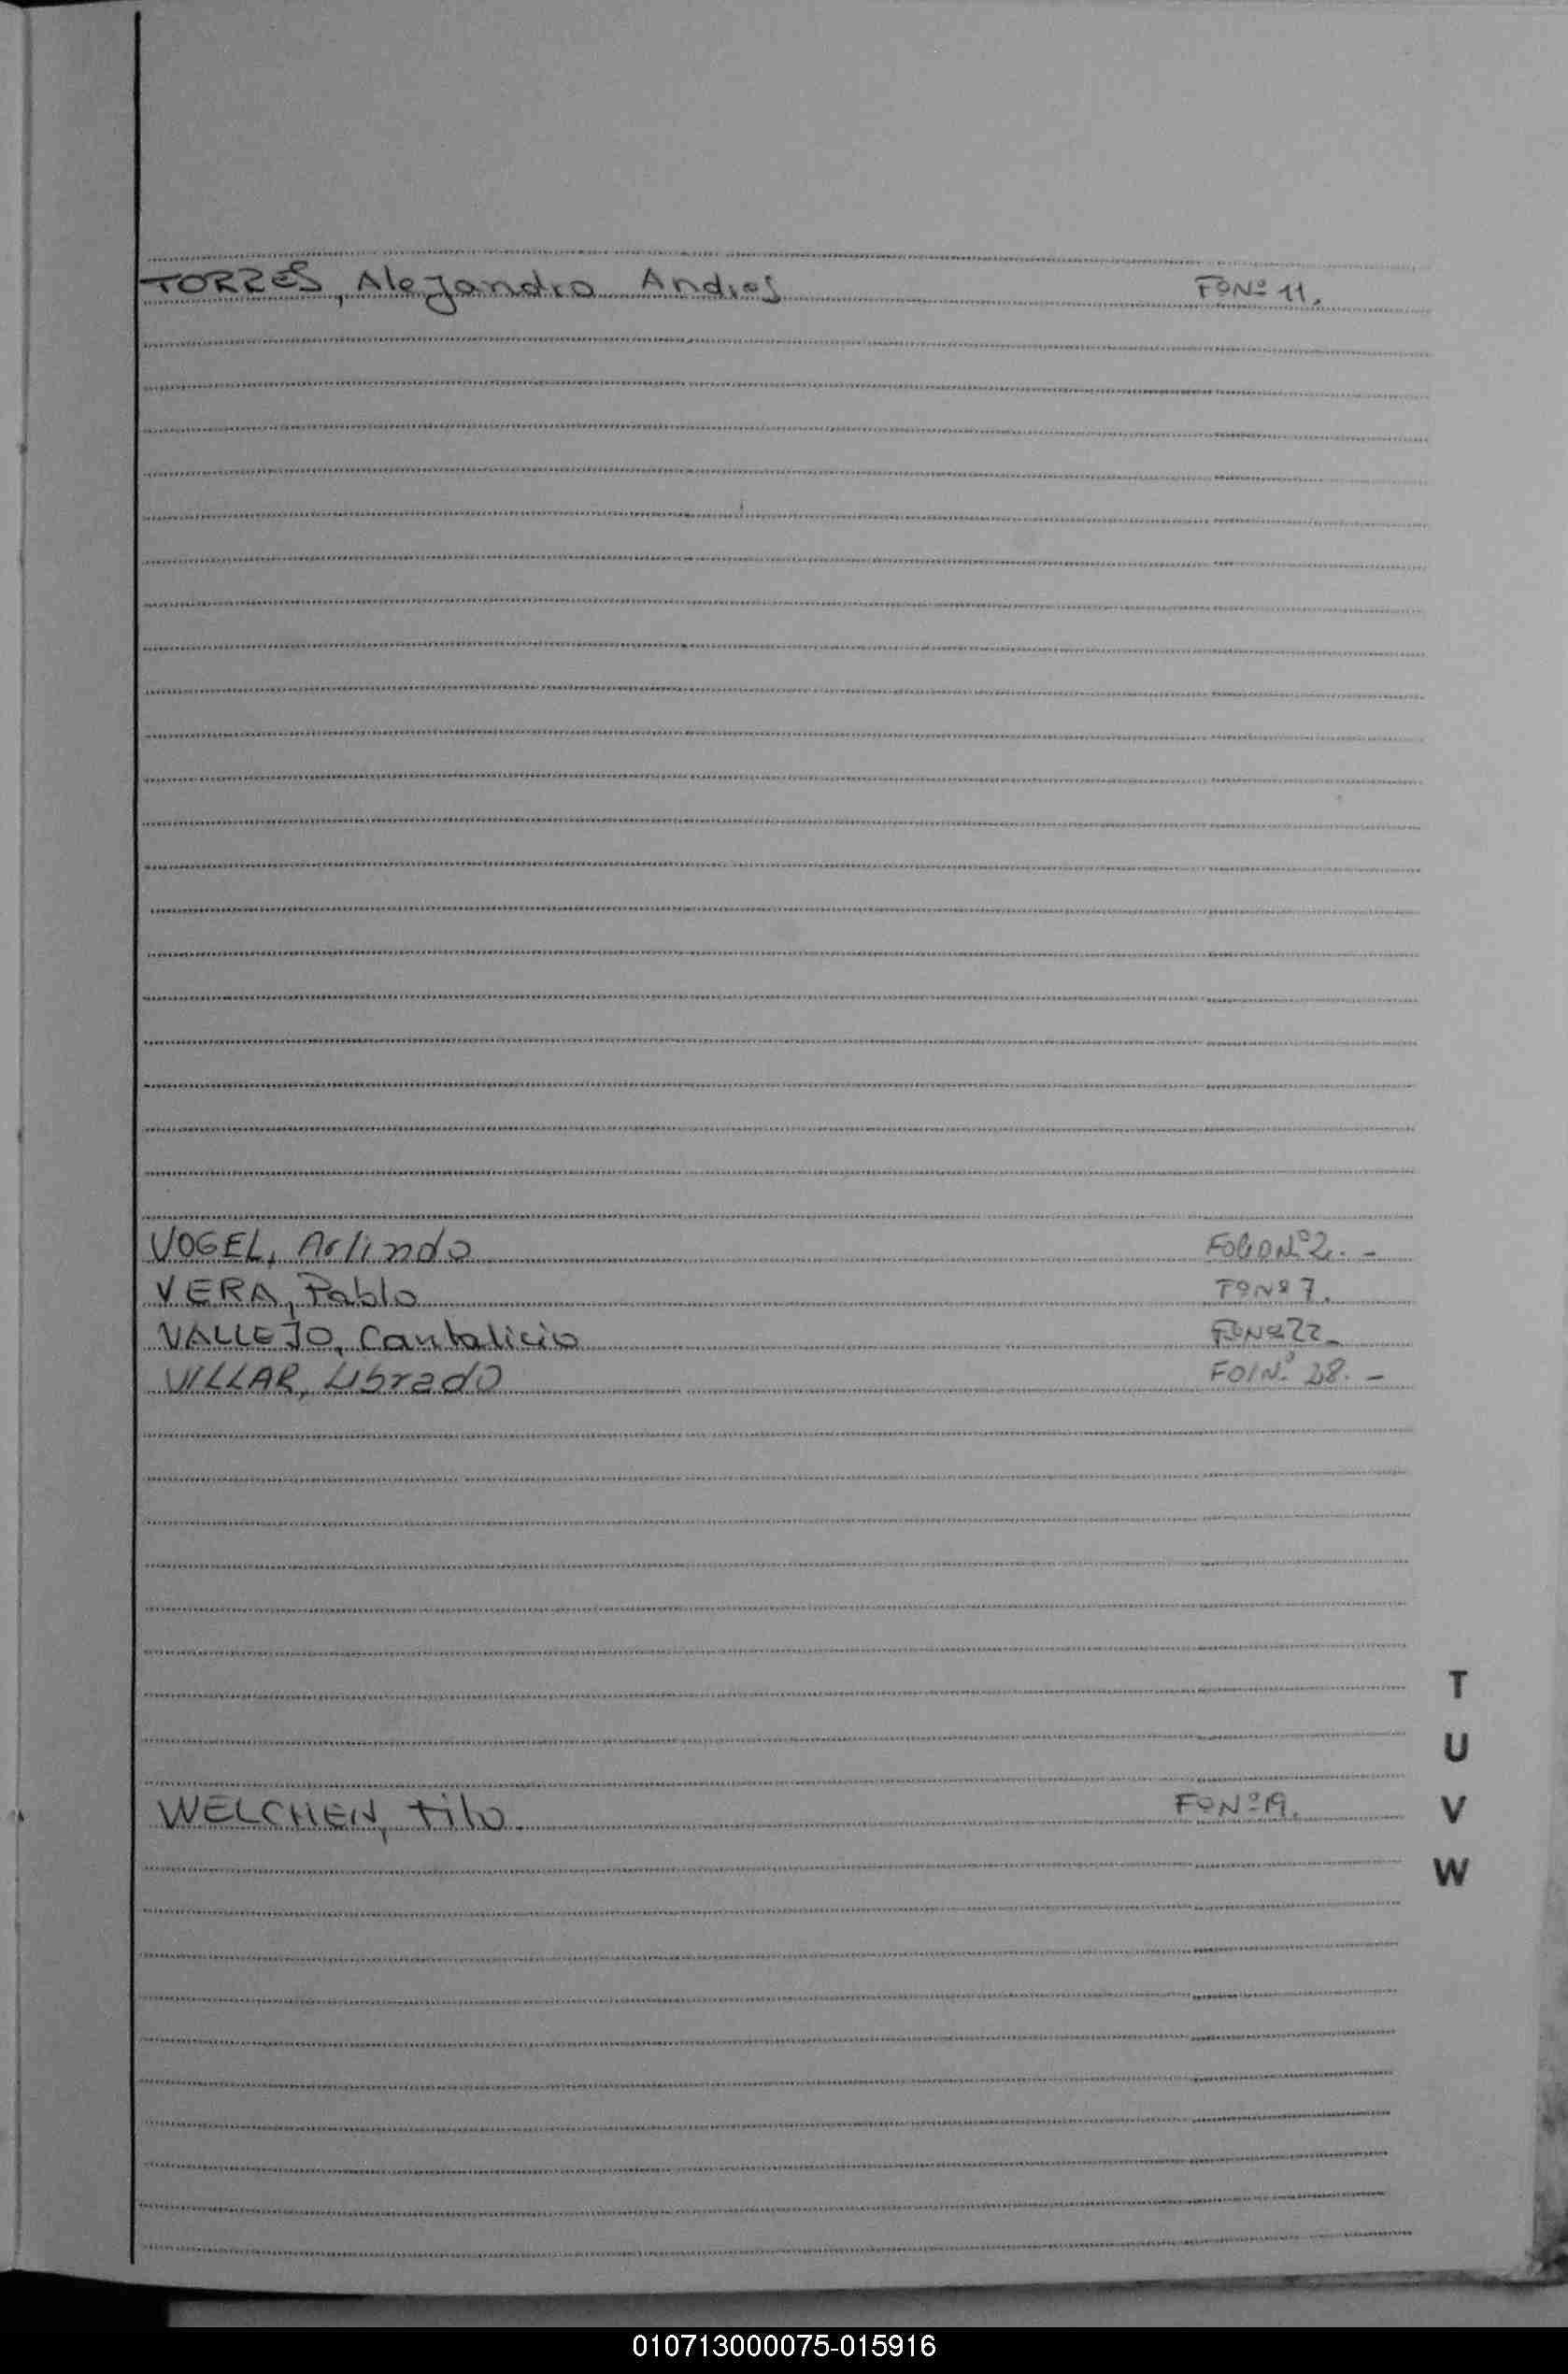 TORRES, Alejandro Andres FºNº 11.
VOGEL, Arlindo FOLIO Nº 2. -
VERA, Pablo FºNº 7.
VALLEJO, Cantalicio FºNº 22_
VILLAR, Librado FOINº 28. -
T
U
WELCHEN, tilo. FºNº 19.
V
W
010713000075-015916